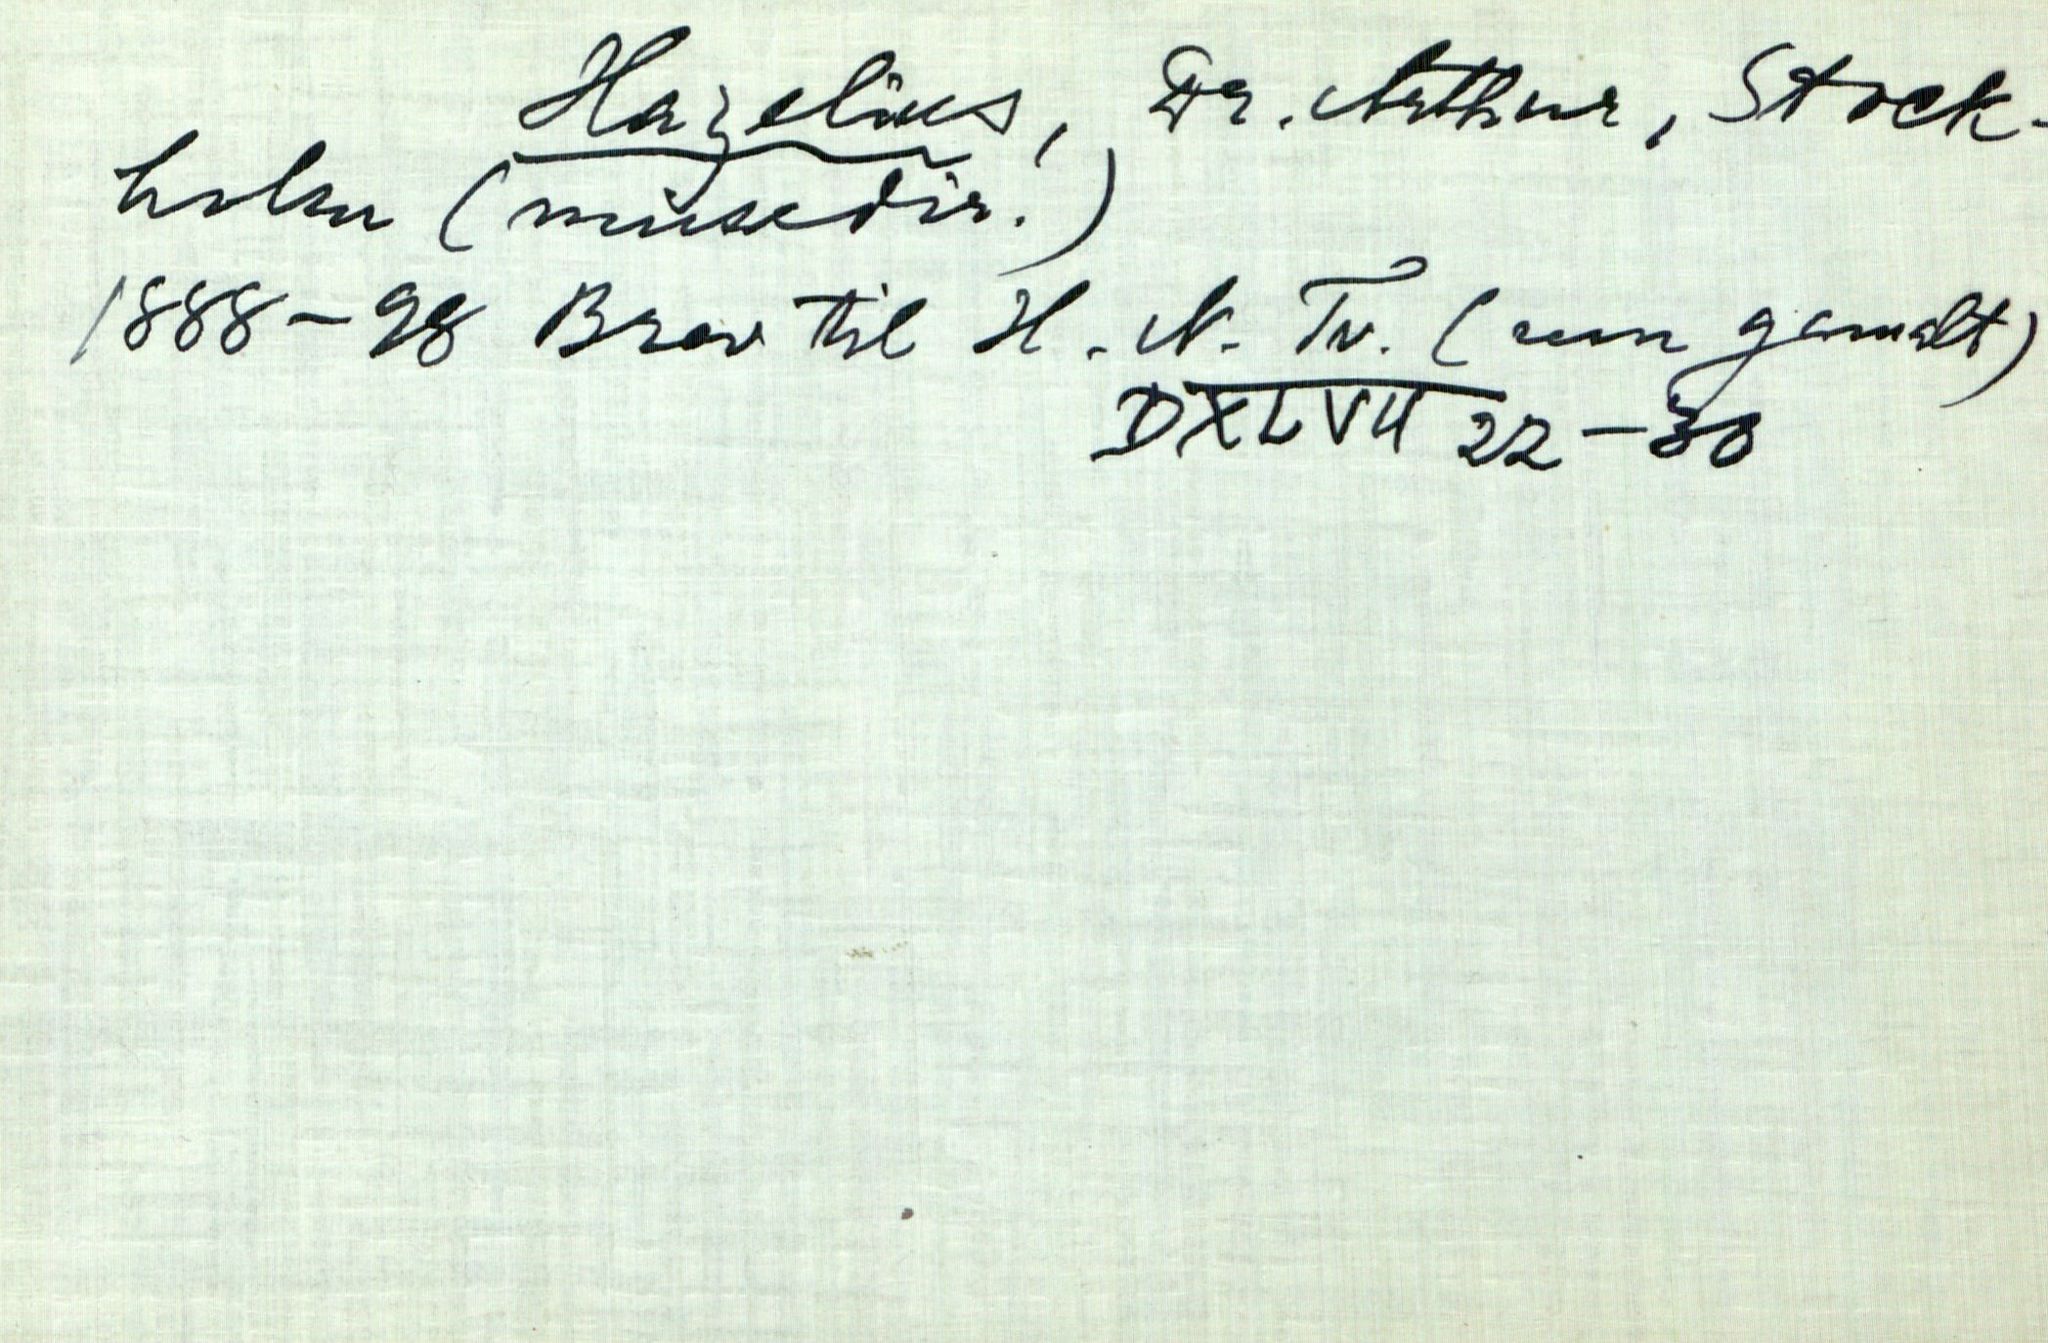 Hazelius, Dr. Arthur, Stock-
holm (musedir.)
1888-98 Brev til H. N. Tv. (om gamalt)
DXLVII 22-30